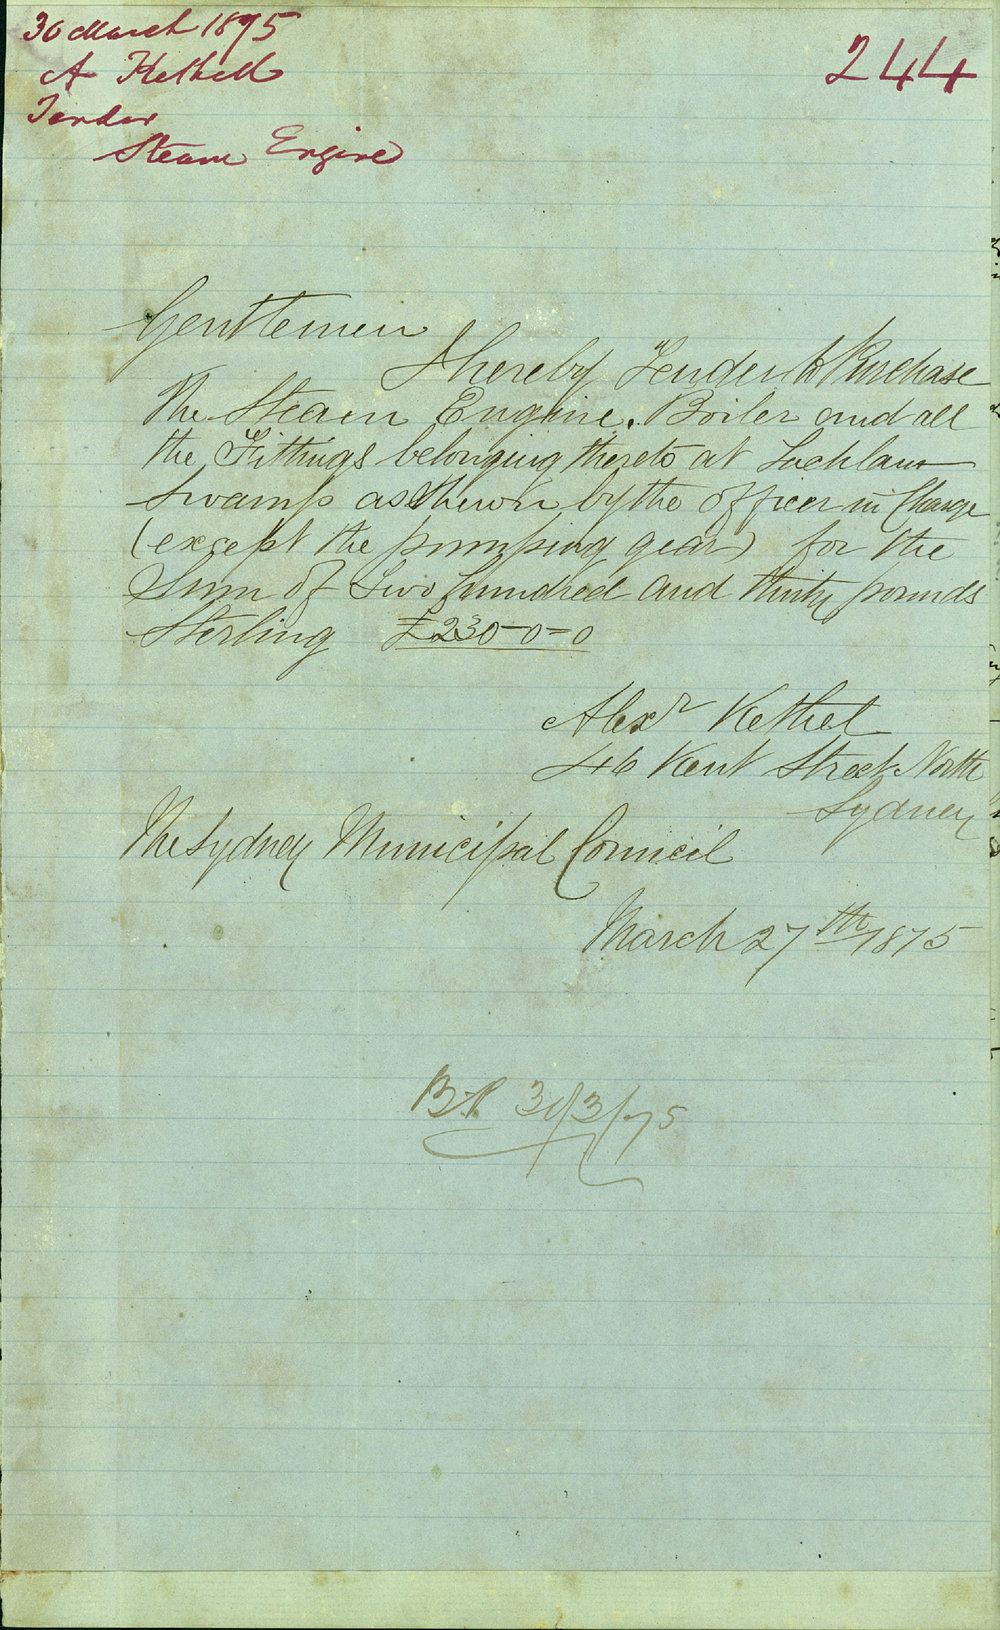 30 March 1875
A Kethell
Tender
Steam Engine
244
Gentlemen
I hereby Tender to Purchase
The Steam Engine, Boiler and all
the Fittings belonging thereto at Lachlan
Swamp as shewn by the officer in Charge
(except the pumping gear) for the
Sum of Two hundred and thirty pounds
Sterling £230-0-0
Alexr Kethel
46 Kent Street North
Sydney
The Sydney Municipal Council
March 27th 1875
31/3/75